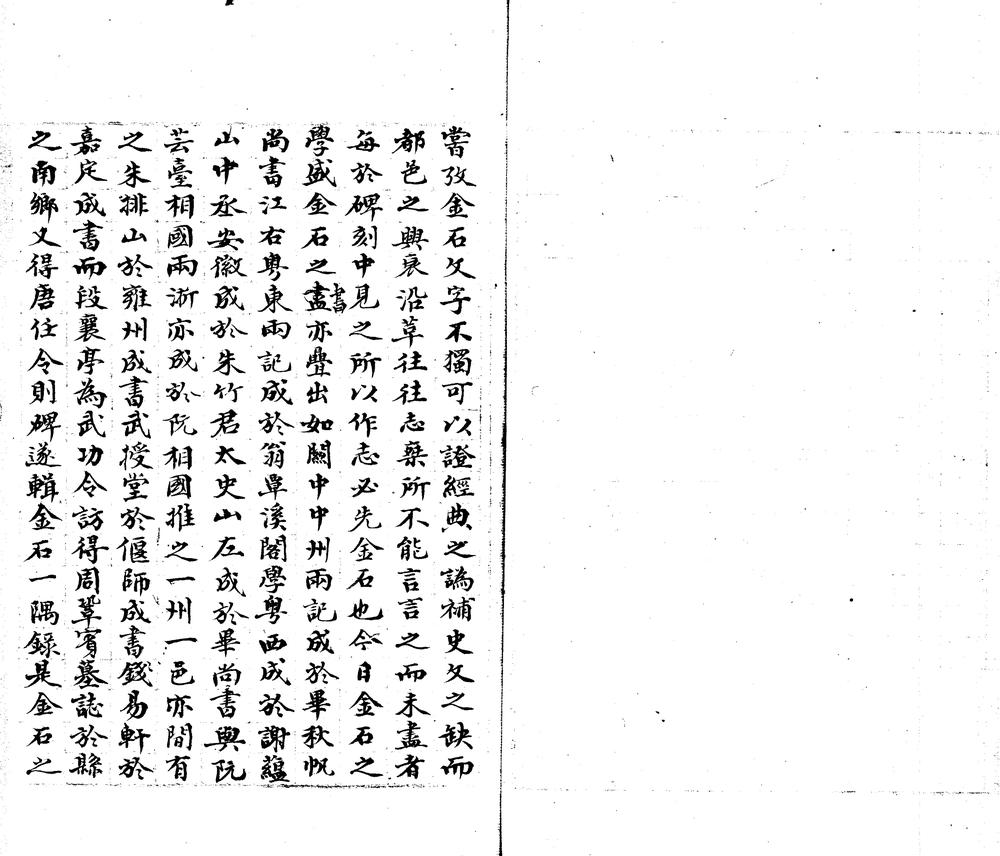 嘗攷金石文字不獨可以證經典之譌補史文之缺而
都邑之興衰沿革往往志乘所不能言言之而未盡者
每於碑刻中見之所以作志必先金石也今日金石之
學盛金石之書亦疊出如關中中州兩記成於畢秋帆
尚書江右粵東兩記成於翁覃溪閣學粵西成於謝藴
山中丞安徽成於朱竹君太史山左成於畢尚書與阮
芸臺相國兩浙亦成於阮相國推之一州一邑亦間有
之朱排山於雍州成書武授堂於偃師成書錢易軒於
嘉定成書而段襄亭為武功令訪得周鞏賓墓誌於縣
之南鄉又得唐任令則碑遂輯金石一隅錄是金石之